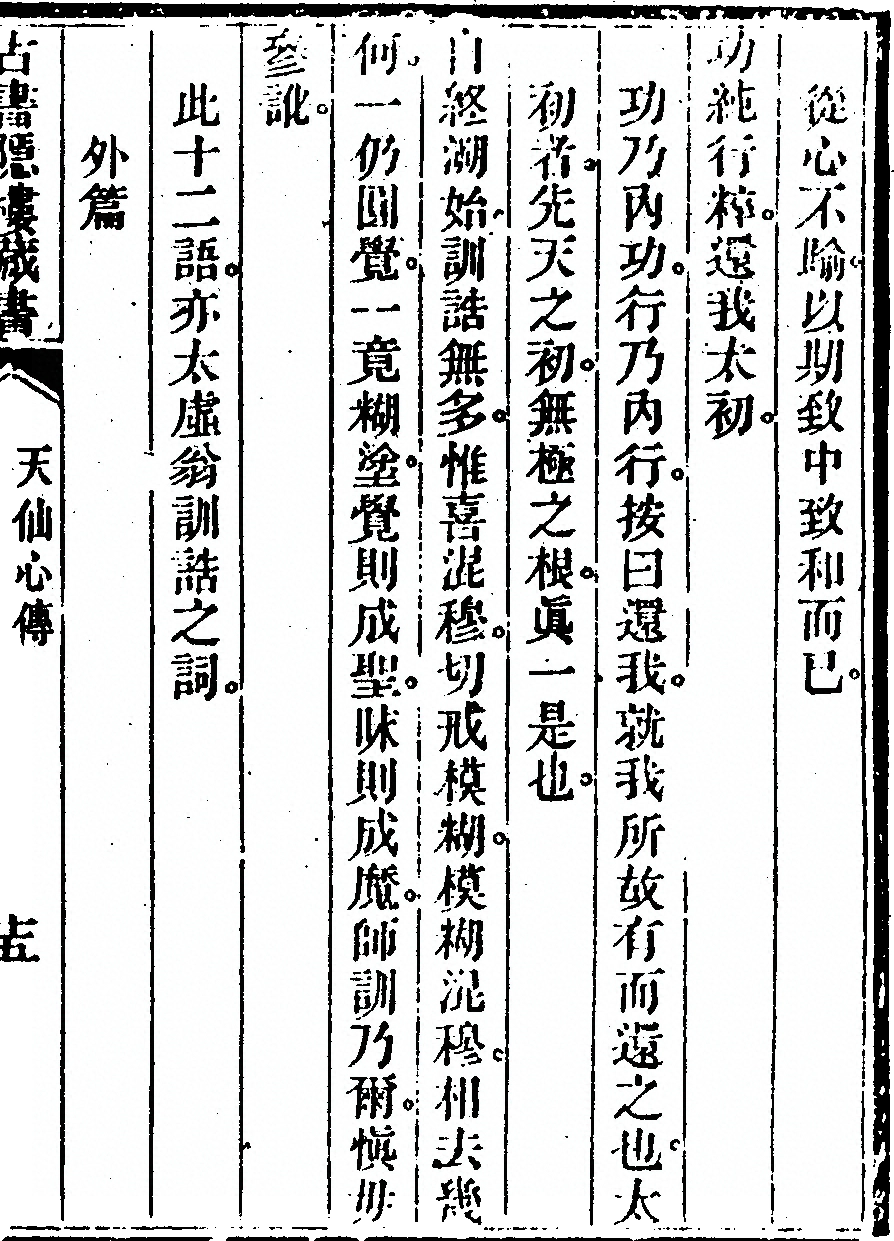 從心不喻。以期致中致和而已。
功純行粹。還我太初。
功乃內功。行乃內行。按曰還我。就我所故有而還之也。太
初者。先天之初。無極之根。眞一是也。
自終溯始。訓誥無多。惟喜混穆。切戒模糊。模糊混穆。相去幾
何。一仍圓覺。一竟糊塗。覺則成聖。昧則成魔。師訓乃爾。愼毋
參訛。
此十二語。亦太虛翁訓誥之詞。
外篇
古書隱樓藏書
天仙心傳
十五